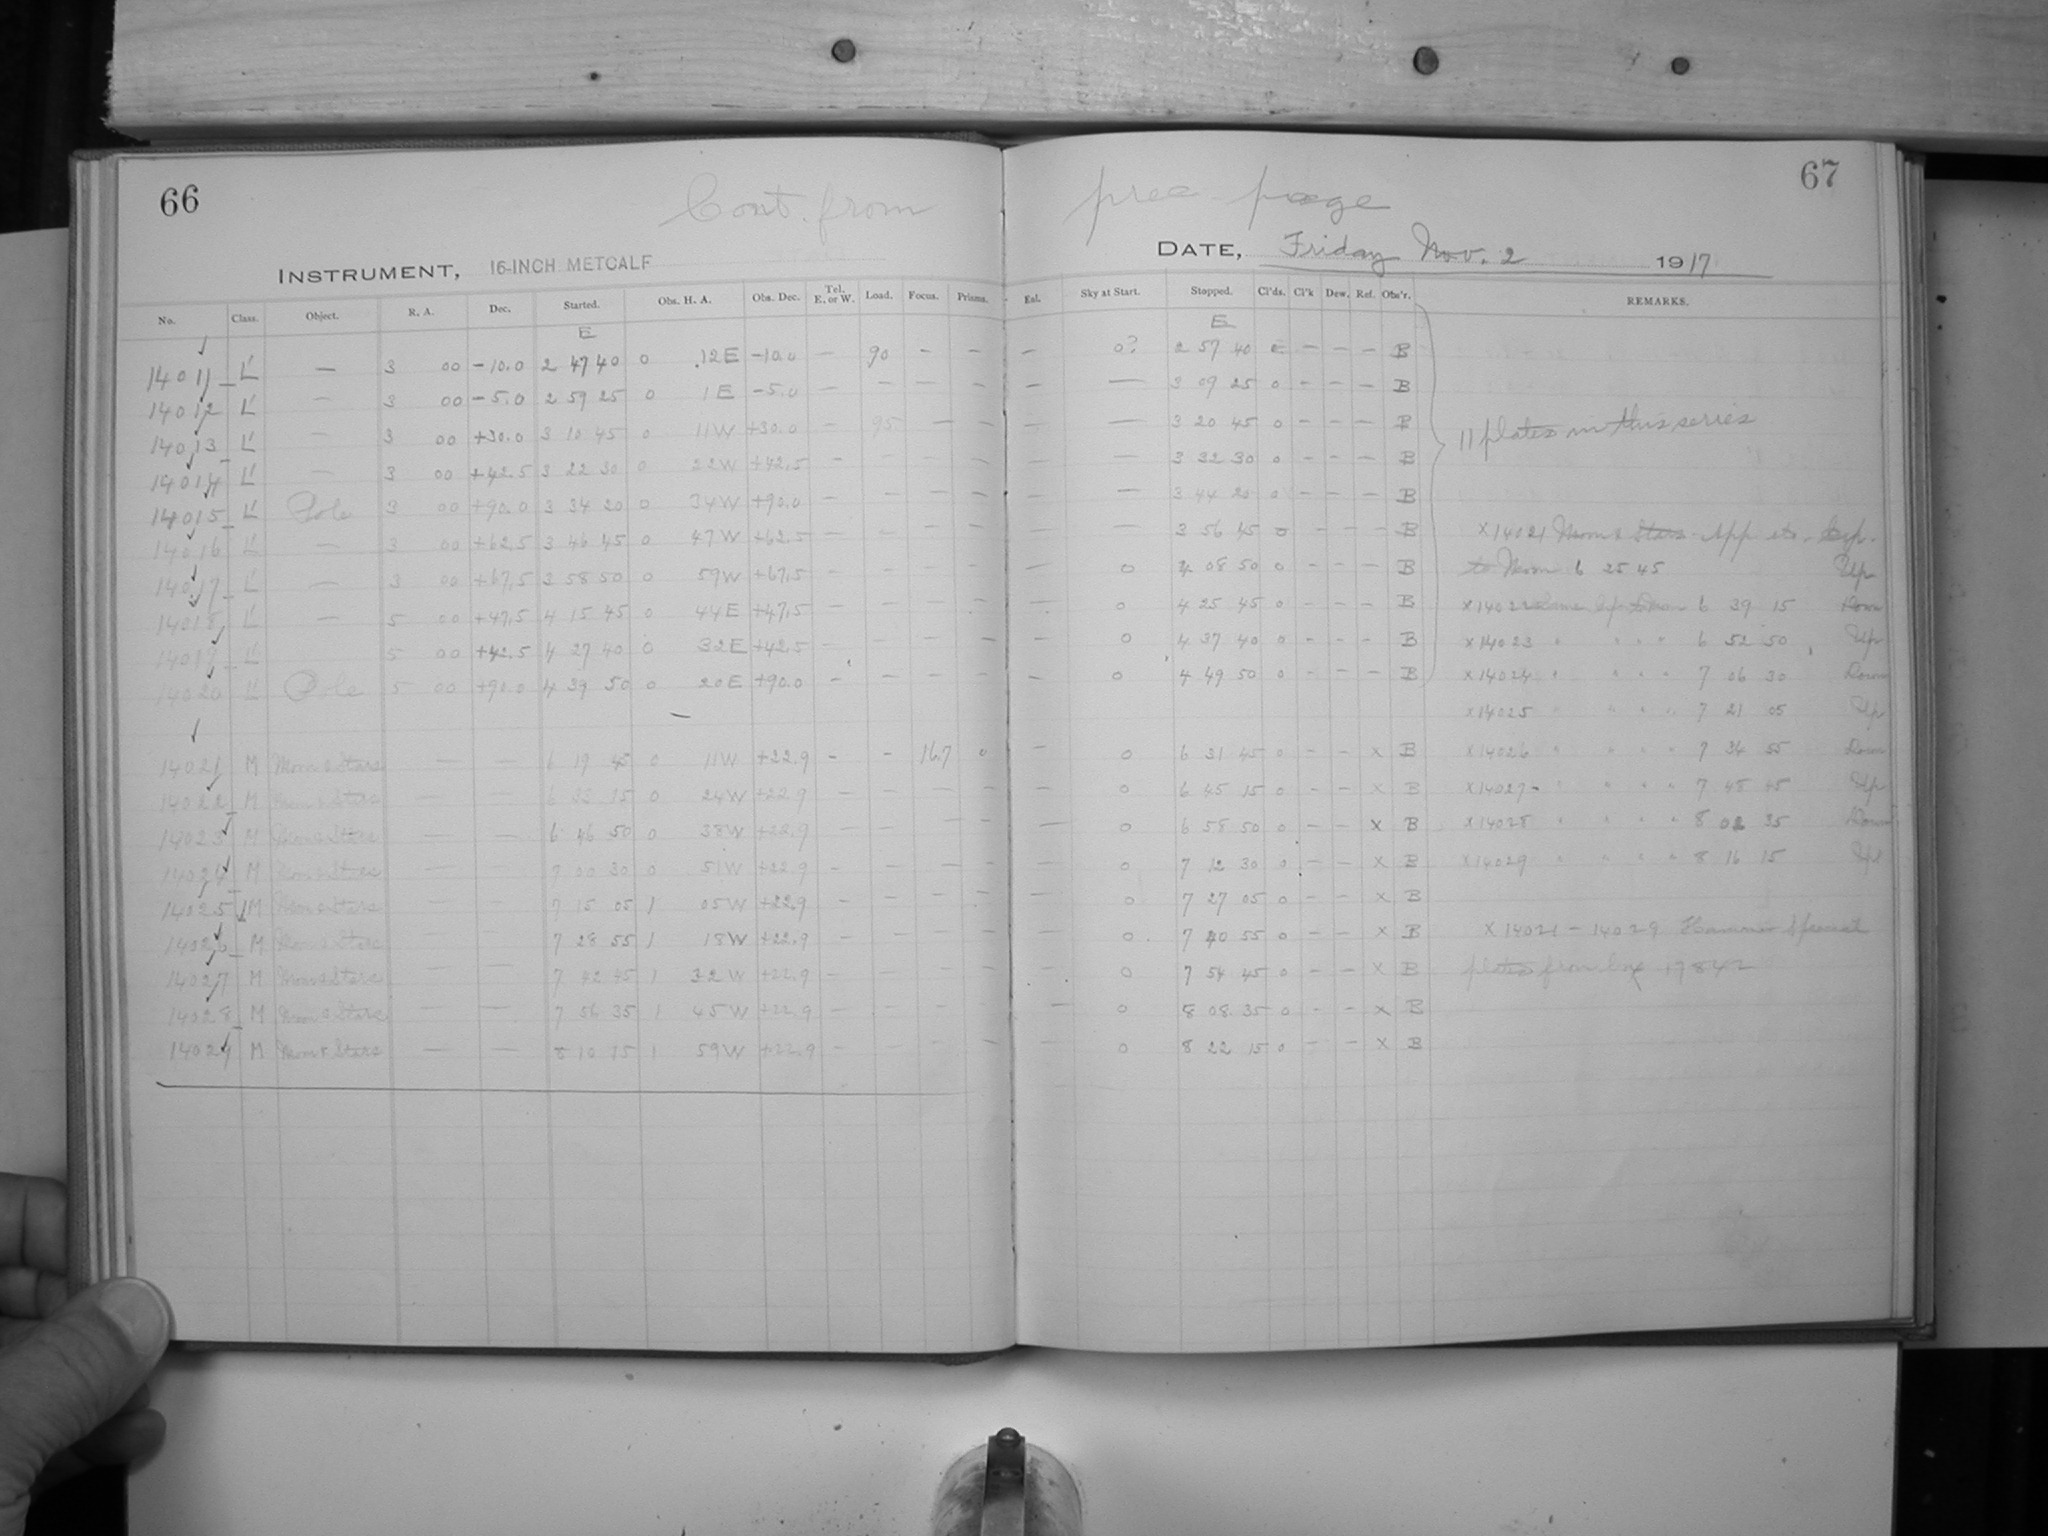 66
67
Cont. from prec page
INSTRUMENT, 16-INCH METCALF
DATE, Friday Nov. 2 1917
No. Class. Object. R. A. Dec. Started. Obs. H. A. Obs. Dec. Tel. E. or W. Load. Focus. Prisms. Ent. Sky at Start. Stopped. Cl'ds. Cl'k Dew. Ref. Obs'r. REMARKS.
E E
14011 L' — 3 00 -10.0 2 47 40 0 .12E -10.0 — 90 - - — 0? 2 57 40 - - - B
14012 L' — 3 00 -5.0 2 59 25 0 1E -5.0 — — — — — — 3 09 25 0 - - - B
14013 L' — 3 00 +30.0 3 10 45 0 11W +30.0 - 95 — — — — 3 20 45 0 - - - B 11 plates in this series
14014 L' — 3 00 +42.5 3 22 30 0 22W +42.5 - — — — — — 3 32 30 0 - - - B
14015 L' Pole 3 00 +90.0 3 34 20 0 34W +90.0 - - — — — — 3 44 20 0 - - - B
14016 L' — 3 00 +62.5 3 46 45 0 47W +62.5 - - — — — — 3 56 45 0 - - - B x14021 Moon & Stars App etc. Exp.
14017 L' — 3 00 +67.5 3 58 50 0 59W +67.5 - - — — — 0 4 08 50 0 - - - B to Moon 6 25 45 Up
14018 L' — 5 00 +47.5 4 15 45 0 44E +47.5 - - — — — 0 4 25 45 0 - - - B x14022 Same Exp to Moon 6 39 15 Down
14019 L' 5 00 +42.5 4 27 40 0 32E +42.5 - - - — — 0 4 37 40 0 - - - B x14023 " " " " 6 52 50 Up
14020 L' Pole 5 00 +90.0 4 39 50 0 20E +90.0 - - - - — 0 4 49 50 0 - - - B x14024 " " " " 7 06 30 Down
x14025 " " " " 7 21 05 Up
14021 M Moon & Stars — — 6 19 45 0 11W +22.9 - - 16.7 0 — 0 6 31 45 0 - - x B x14026 " " " " 7 34 55 Down
14022 M Moon & Stars — — 6 33 15 0 24W +22.9 — — — — — 0 6 45 15 0 - - x B x14027 - " " " 7 48 45 Up
14023 M Moon & Stars — — 6 46 50 0 38W +22.9 — — — — — 0 6 58 50 0 - - x B x14028 " " " " 8 02 35 Down
14024 M Moon & Stars — — 7 00 30 0 51W +22.9 - - — — — 0 7 12 30 0 - - x B x14029 " " " " 8 16 15 Up
14025 M Moon & Stars — — 7 15 05 1 05W +22.9 - - - - — 0 7 27 05 0 - - x B
14026 M Moon & Stars — — 7 28 55 1 18W +22.9 - - - - — 0 7 40 55 0 - - x B x 14021 - 14029 Hammer Special
14027 M Moon & Stars — — 7 42 45 1 32W +22.9 - - - - — 0 7 54 45 0 - - x B plates from box 19842
14028 M Moon & Stars — — 7 56 35 1 45W +22.9 - - - - — 0 8 08 35 0 - - x B
14029 M Moon & Stars — — 8 10 15 1 59W +22.9 - - - - — 0 8 22 15 0 - - x B